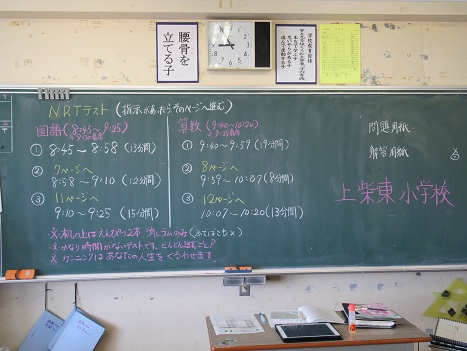 腰骨を
立てる子
学校教育目標
NRTテスト (指示があったらそのページへ進む)
国語 (8:45～9:25)
① 8:45～8:58 (13分間)
② 7ページへ
8:58～9:10 (12分間)
③ 11ページへ
9:10～9:25 (15分間)
算数 (9:40～10:20)
① 9:40～9:59 (19分間)
② 8ページへ
9:59～10:07 (8分間)
③ 12ページへ
10:07～10:20 (13分間)
※机の上はえんぴつ2本 消しゴムのみ (ふでばこも×)
※かなり時間がないテストです。どんどん進むこと?
※カンニングはあなたの人生をくるわせます
問題用紙
解答用紙
上柴東小学校